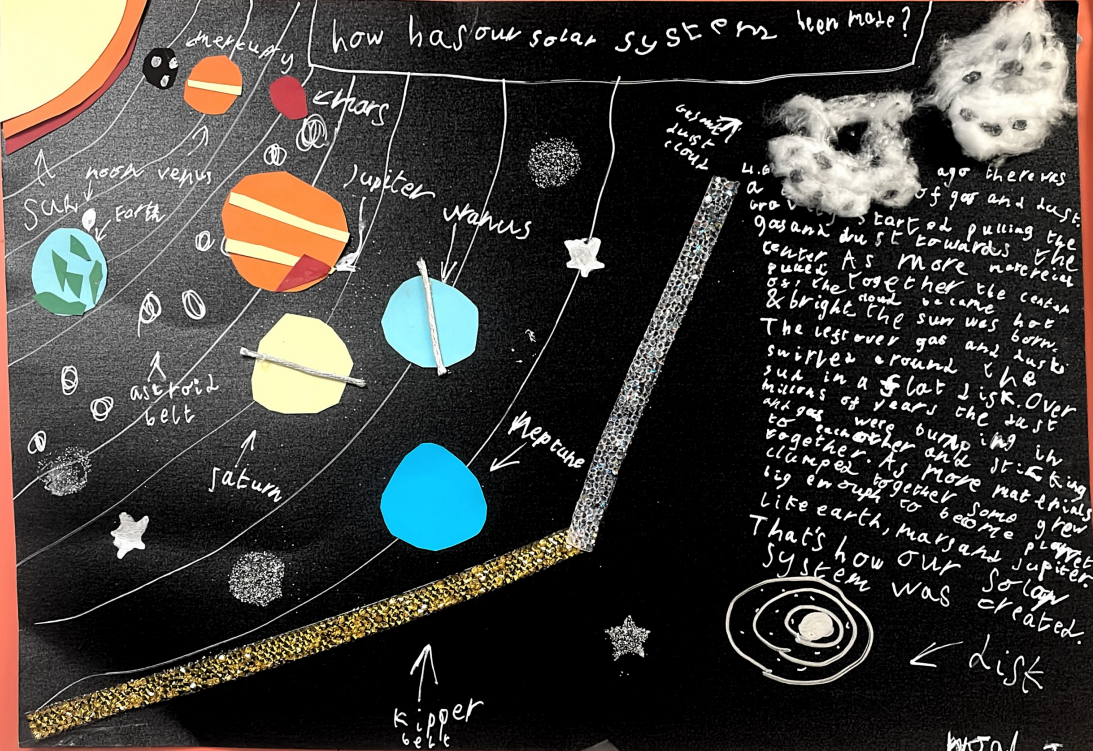 how has our solar systems been made?
mercury
mars
moon venus
Sun
Earth
Jupiter
uranus
astroid
belt
saturn
Neptune
kipper
belt
dust
cloud
ago there was
a of gas and dust.
started pulling the
gas and dust towards the
center. As more
pulled together the center
of the cloud became hot
& bright the sun was born.
The left over gas and dust
swirled around the
sun in a flat disk. Over
millions of years the dust
and gas were bumping in
to each other and sticking
together. As more materials
clumped together some grew
big enough to become planet
like earth, mars and jupiter.
That's how our solar
system was created.
disk